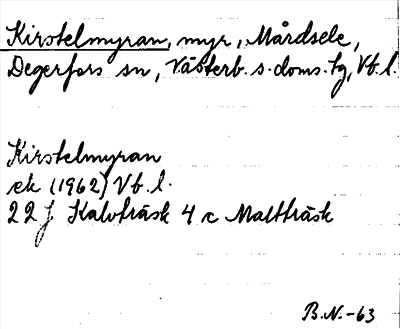 Kirstelmyran, myr, Mårdsele,
Degerfors sn, Västerb. s. doms. tg, Vb. l.
Kirstelmyran
ek (1962) Vb. l.
22 J Kalvträsk 4 c Maltträsk
B.N.-63